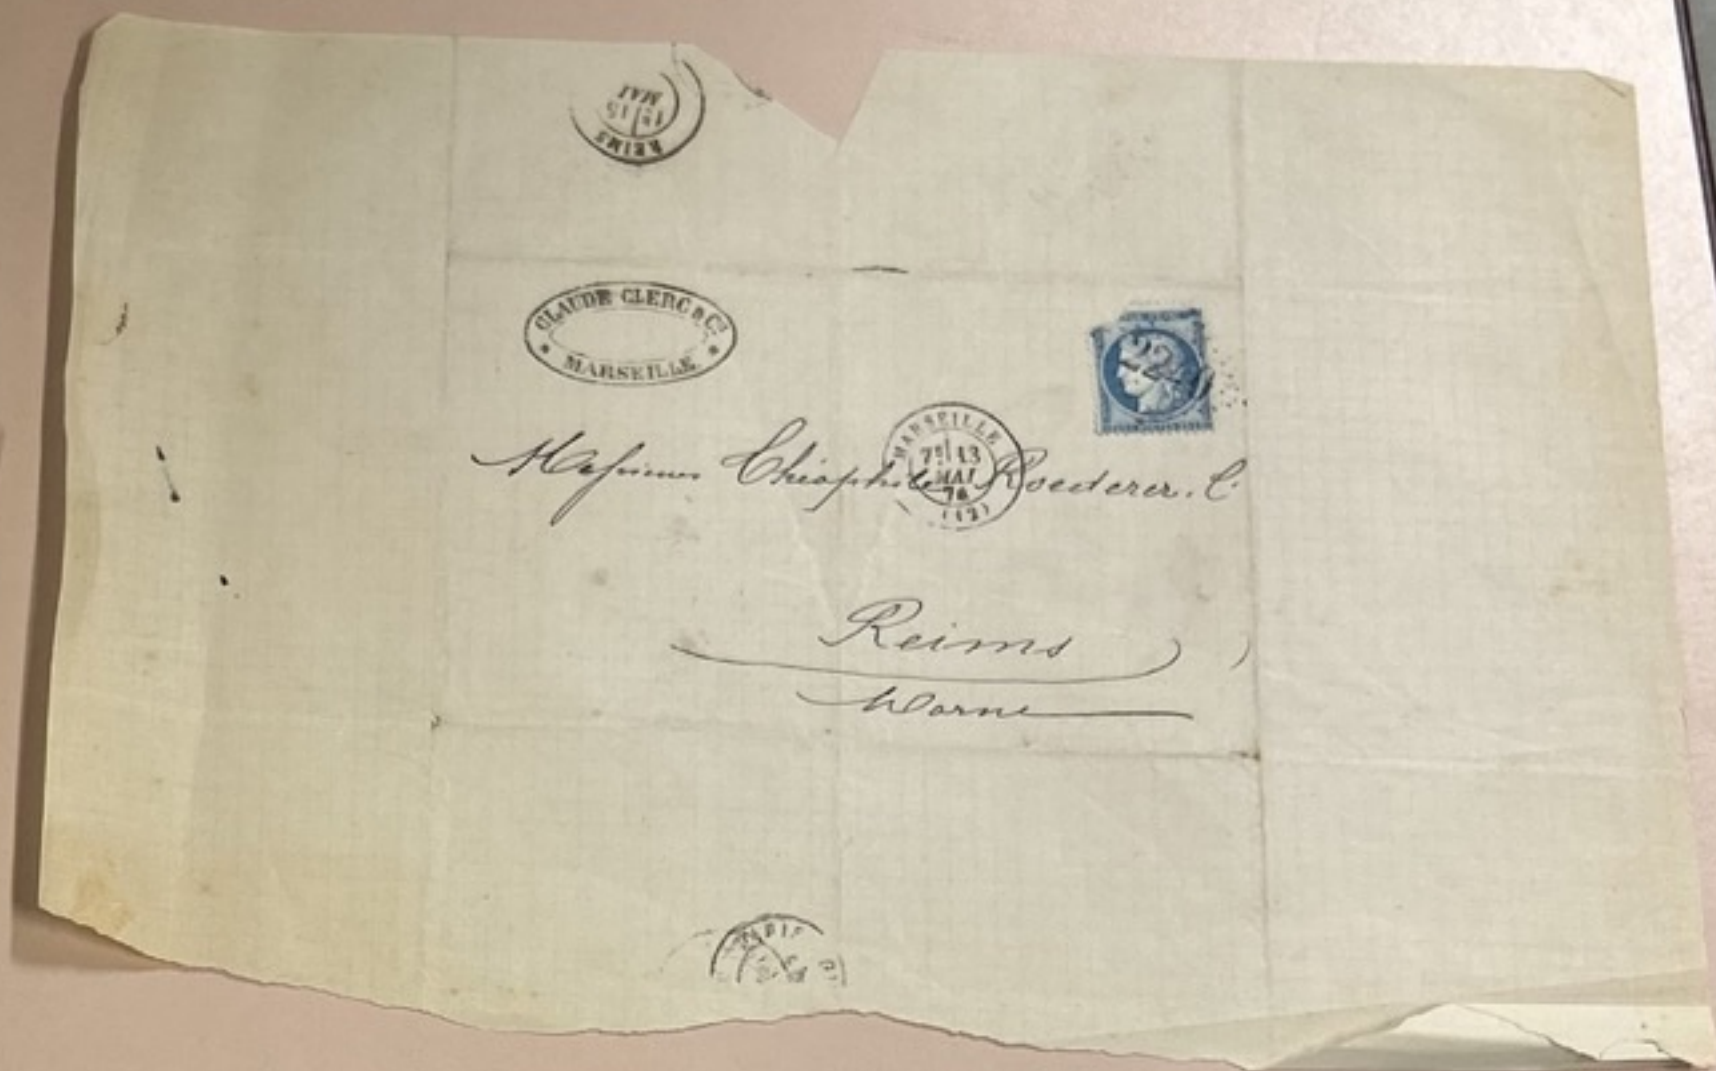 REIMS
15
MAI
CLAUDE CLERC & Cie
MARSEILLE
MARSEILLE
7E 13
MAI
76
(12)
Messieurs Théophile Roederer. C.
Reims
Marne
PARIS